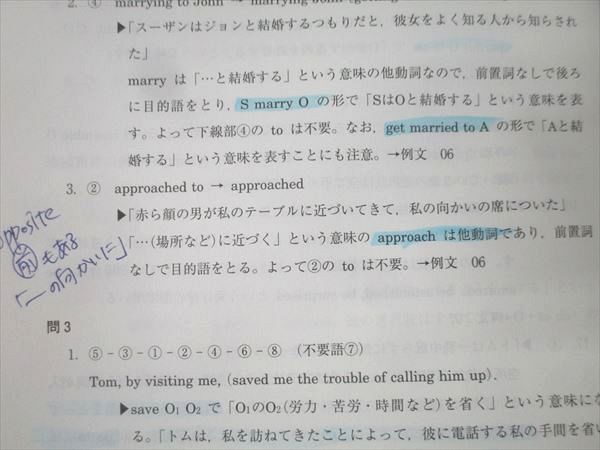 2. ④ marrying to John → marrying John
▶「スーザンはジョンと結婚するつもりだと，彼女をよく知る人から知らされ
た」
marry は「…と結婚する」という意味の他動詞なので，前置詞なしで後ろ
に目的語をとり，S marry O の形で「SはOと結婚する」という意味を表
す。よって下線部④の to は不要。なお，get married to A の形で「Aと結
婚する」という意味を表すことにも注意。→例文 06
3. ② approached to → approached
▶「赤ら顔の男が私のテーブルに近づいてきて，私の向かいの席についた」
「…(場所など)に近づく」という意味の approach は他動詞であり，前置詞
なしで目的語をとる。よって②の to は不要。→例文 06
opposite
前もある
「―の向かいに」
問3
1. ⑤-③-①-②-④-⑥-⑧ (不要語⑦)
Tom, by visiting me, (saved me the trouble of calling him up).
▶save O₁ O₂ で「O₁のO₂(労力・苦労・時間など)を省く」という意味にな
る。「トムは，私を訪ねてきたことによって，彼に電話する私の手間を省い